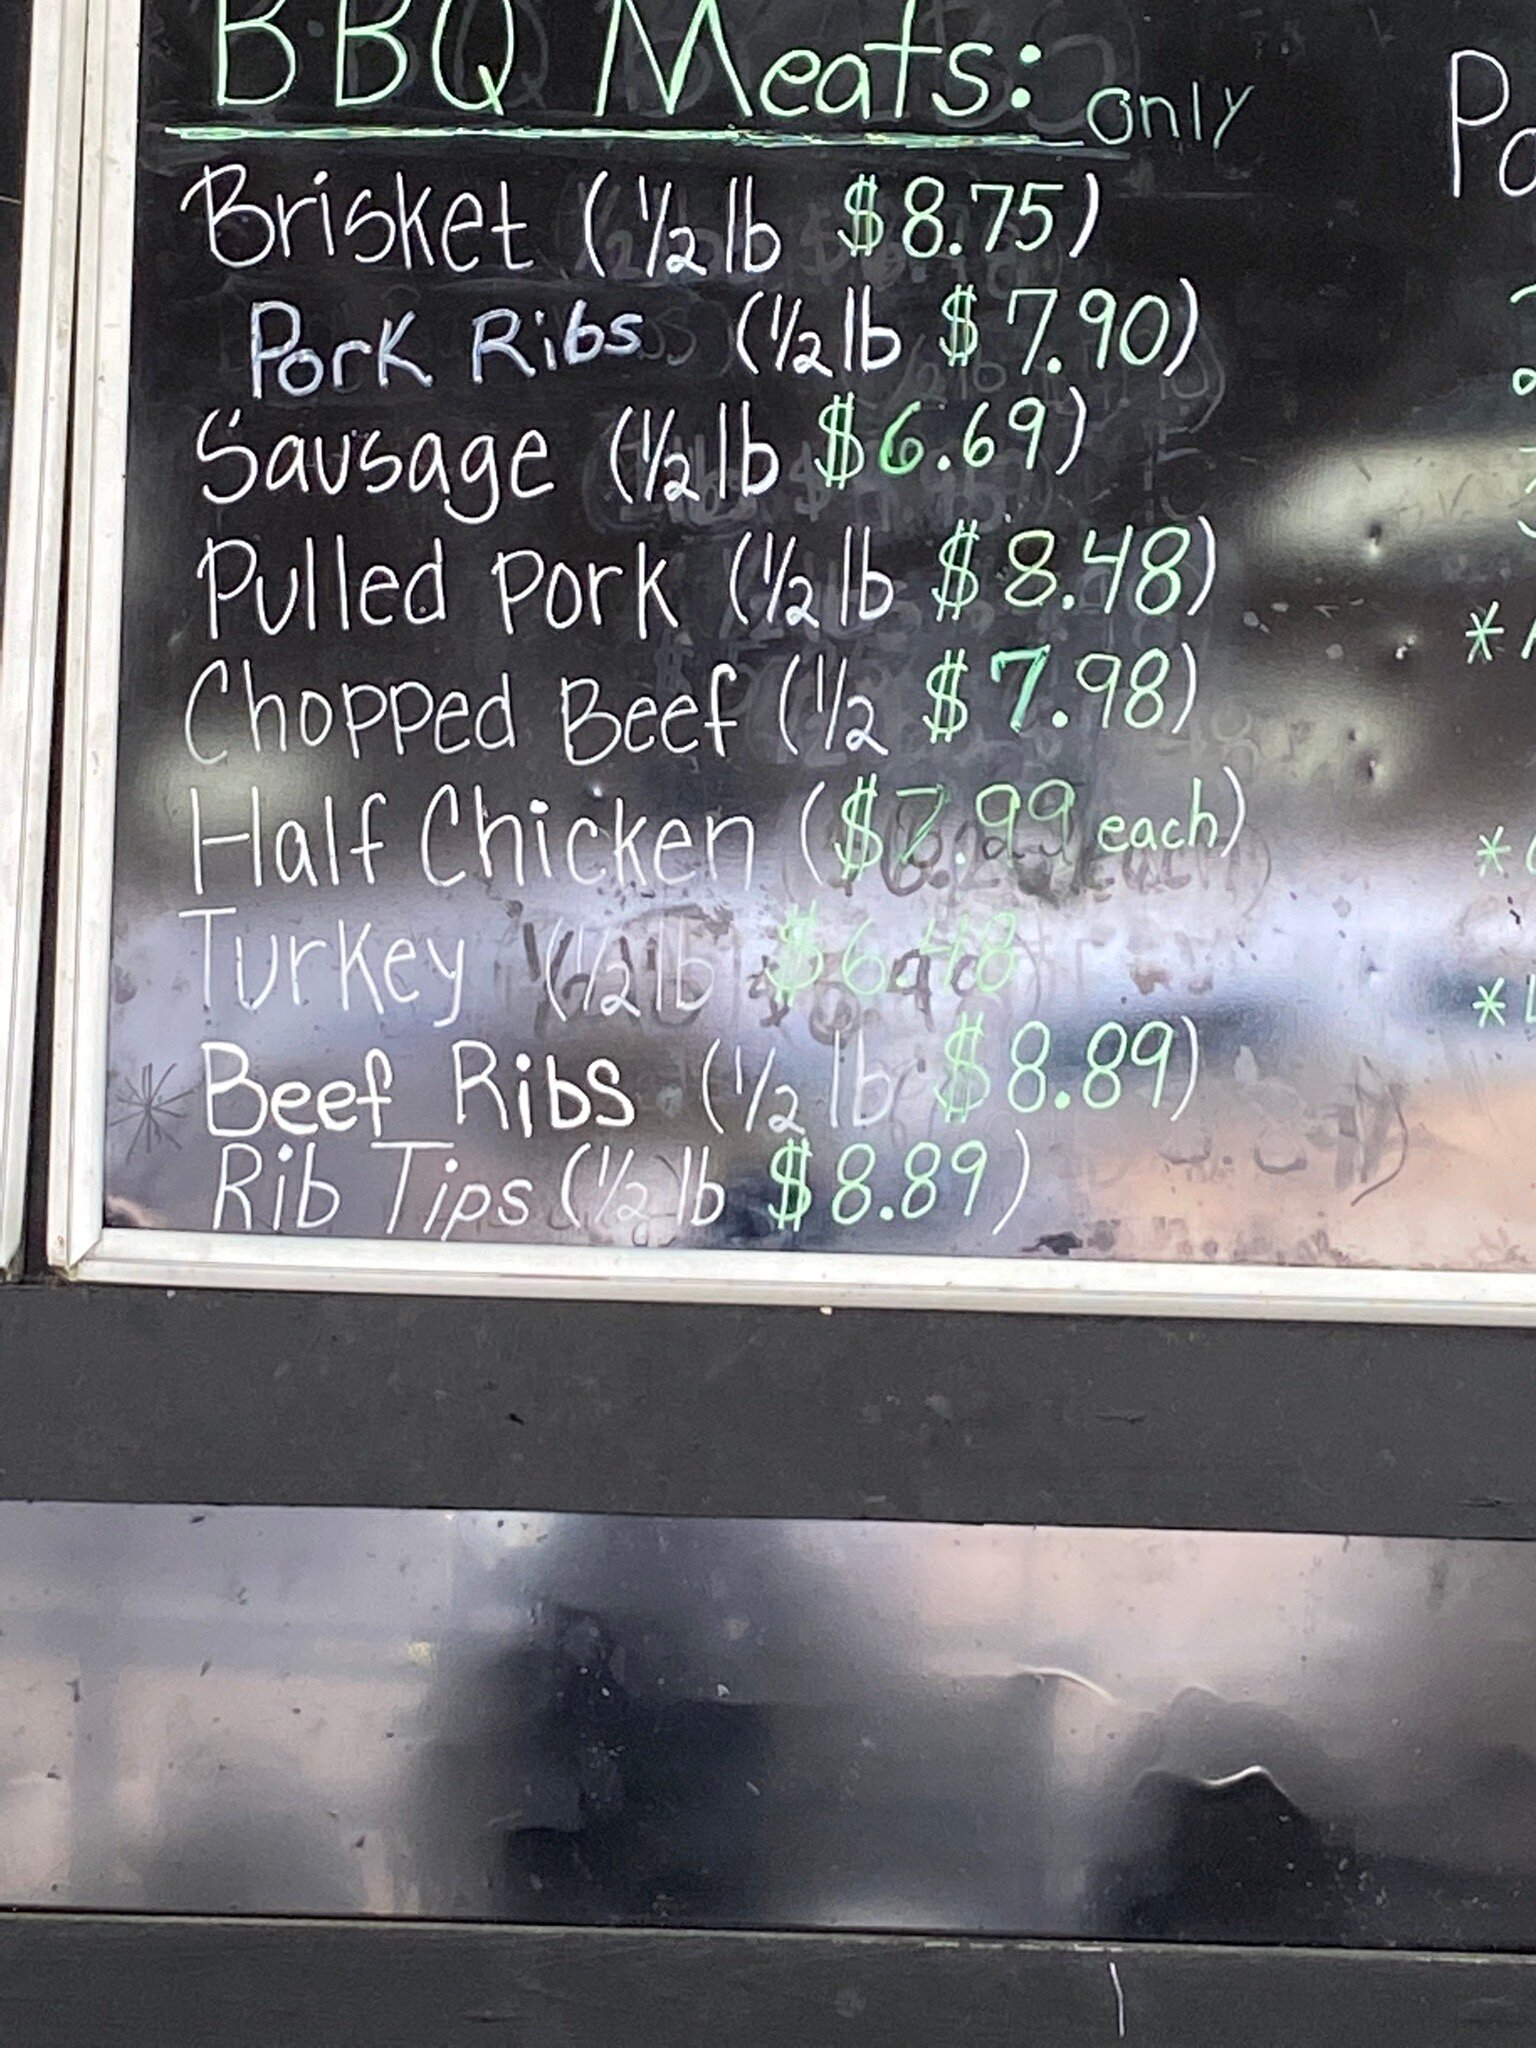 BBQ Meats: only
Brisket (1/2 lb $8.75)
Pork Ribs (1/2 lb $7.90)
Sausage (1/2 lb $6.69)
Pulled Pork (1/2 lb $8.48)
Chopped Beef (1/2 $7.98)
Half Chicken ($7.99 each)
Turkey (1/2 lb $6.48
Beef Ribs (1/2 lb $8.89)
Rib Tips (1/2 lb $8.89)